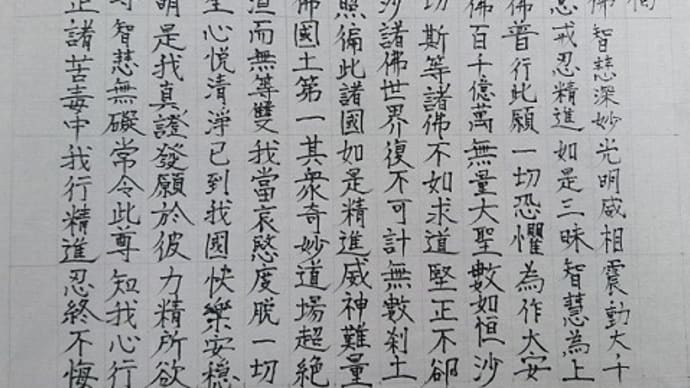 偈
佛智慧深妙光明威相震動大千
意戒忍精進如是三昧智慧為上
佛普行此願一切恐懼為作大安
佛百千億萬無量大聖數如恒沙
切斯等諸佛不如求道堅正不卻
沙諸佛世界復不可計無數剎土
照徧此諸國如是精進威神難量
佛國土第一其眾奇妙道場超絕
洹而無等雙我當哀愍度脫一切
生心悅清淨已到我國快樂安穩
明是我真證發願於彼力精所欲
智慧無礙常令此尊知我心行
諸苦毒中我行精進忍終不悔